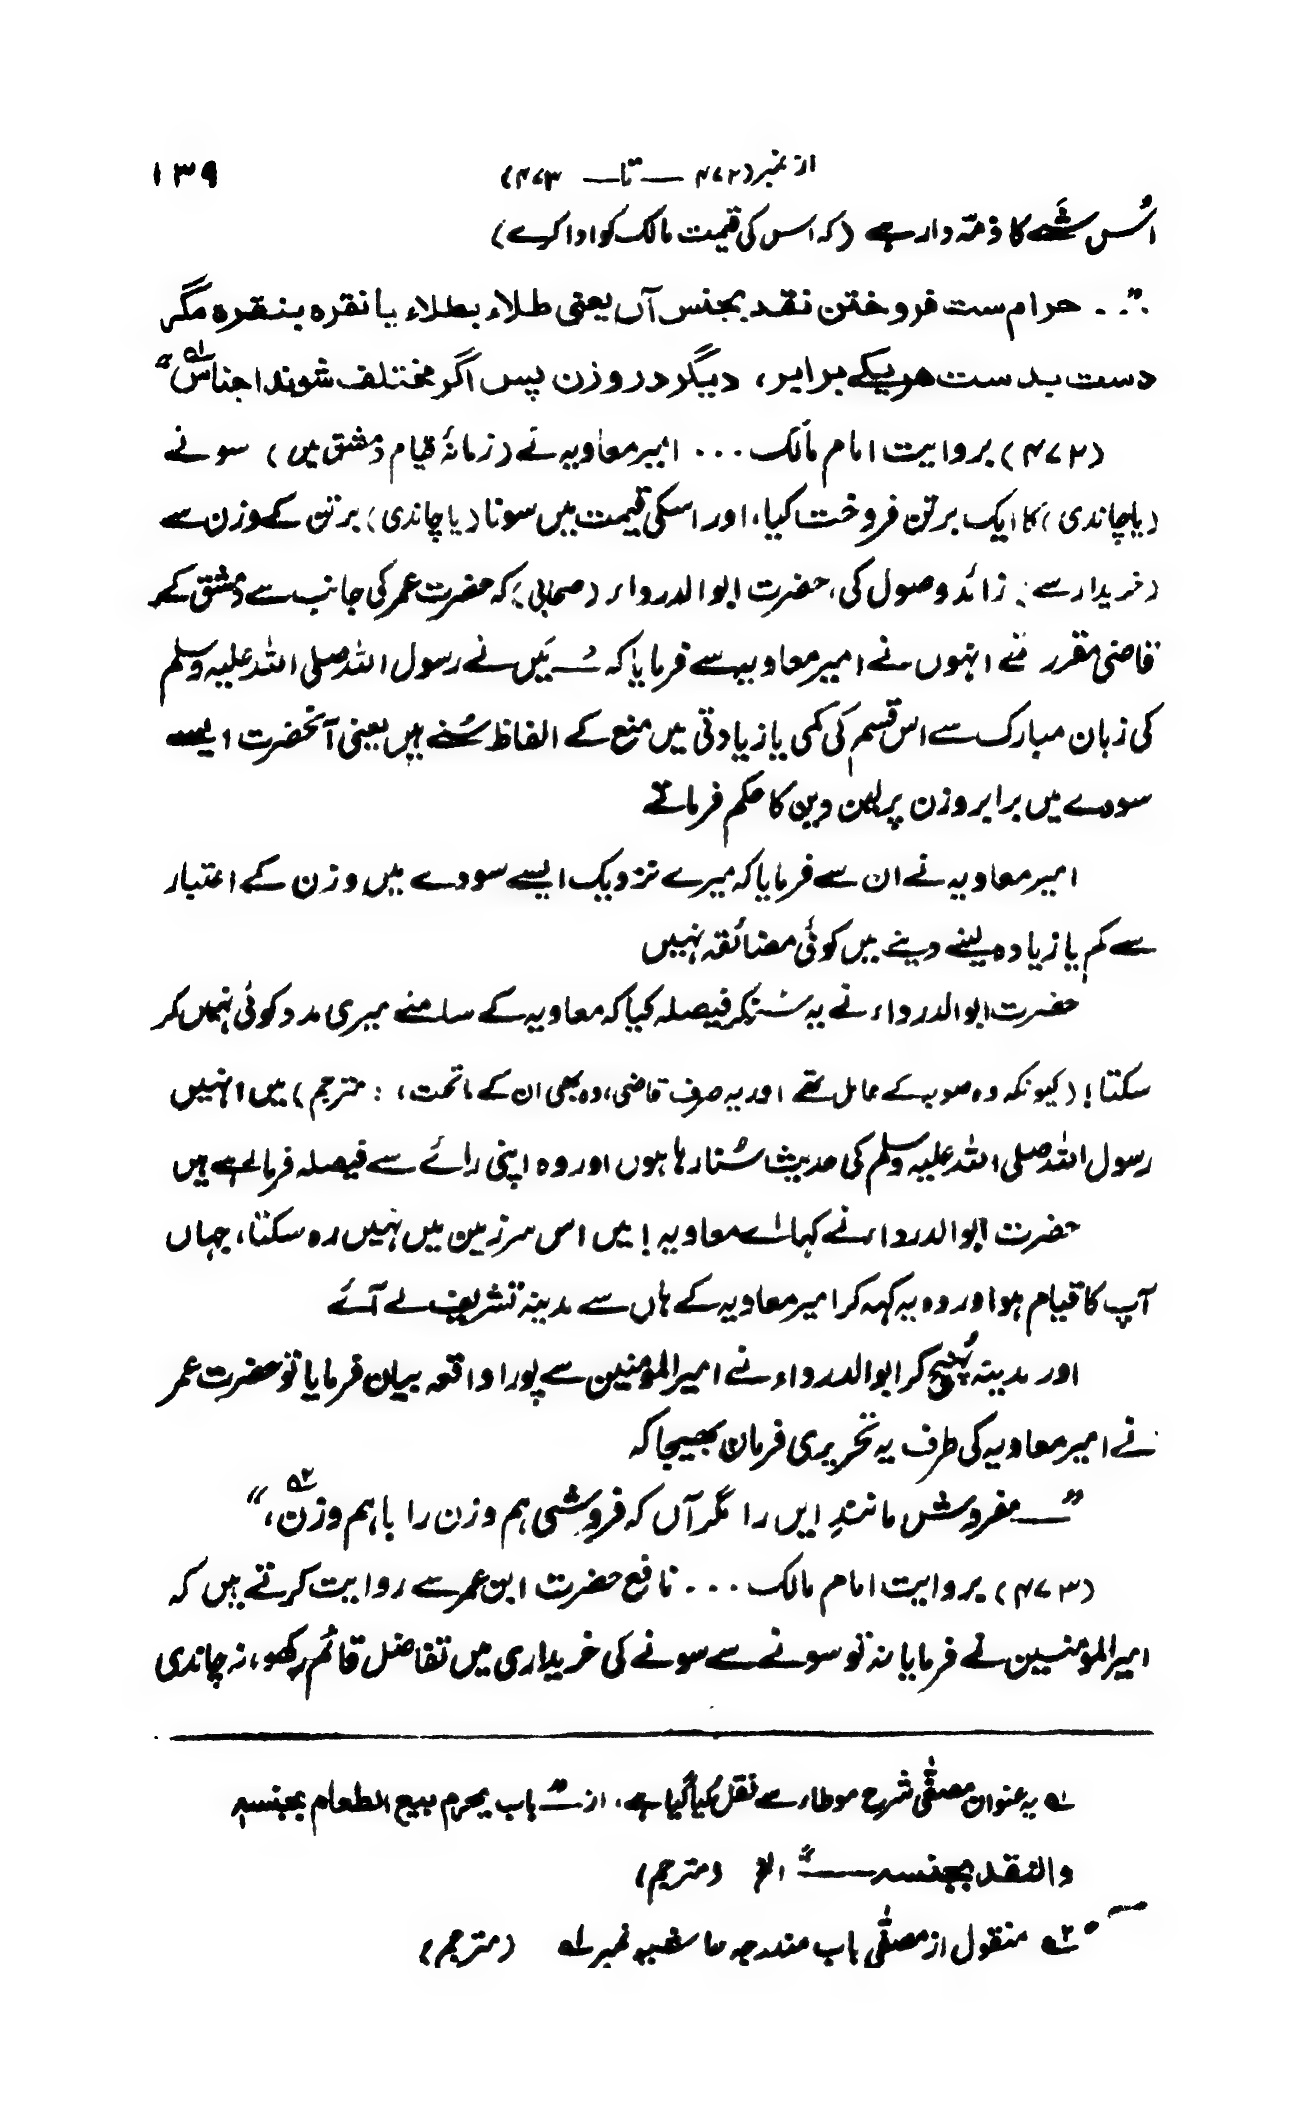 از نمبر (۴۷۲ — تا — ۴۷۳) ۱۳۹
اُس شَے کا ذمّہ دار ہے (کہ اس کی قیمت مالک کو ادا کرے)
”.. حرام ست فروختن نقد بجنس آں یعنی طلاء بطلاء یا نقرہ بنقرہ مگر
دست بدست ہر یکے برابر، دیگر در وزن پس اگر مختلف شوند اجناس ؎۱“
(۴۷۲) بروایت امام مالک ... امیر معاویہ نے (زمانۂ قیام دمشق میں) سونے
(یا چاندی) کا ایک برتن فروخت کیا، اور اسکی قیمت میں سونا (یا چاندی) برتن کے وزن سے
(خریدار سے) زائد وصول کی، حضرت ابو الدرداء (صحابی) کہ حضرت عمر کی جانب سے دمشق کے
قاضی مقرر تھے انہوں نے امیر معاویہ سے فرمایا کہ ـُـ مَیں نے رسول اللہ صلی اللہ علیہ وسلم
کی زبان مبارک سے اس قسم کی کمی یا زیادتی میں منع کے الفاظ سُنے ہیں یعنی آنحضرت ایسے
سودے میں برابر وزن پر لین دین کا حکم فرماتے
امیر معاویہ نے ان سے فرمایا کہ میرے نزدیک ایسے سودے میں وزن کے اعتبار
سے کم یا زیادہ لینے دینے میں کوئی مضائقہ نہیں
حضرت ابو الدرداء نے یہ سُنکر فیصلہ کیا کہ معاویہ کے سامنے میری مدد کوئی نہیں کر
سکتا! (کیونکہ وہ صوبہ کے عامل تھے اور یہ صرف قاضی، وہ بھی ان کے ماتحت، : مترجم) میں انہیں
رسول اللہ صلی اللہ علیہ وسلم کی حدیث سُنا رہا ہوں اور وہ اپنی رائے سے فیصلہ فرما رہے ہیں
حضرت ابو الدرداء نے کہا اے معاویہ! میں اس سرزمین میں نہیں رہ سکتا، جہاں
آپ کا قیام ہو اور وہ یہ کہہ کر امیر معاویہ کے ہاں سے مدینہ تشریف لے آئے
اور مدینہ پُہنچ کر ابو الدرداء نے امیر المؤمنین سے پورا واقعہ بیان فرمایا تو حضرت عمر
نے امیر معاویہ کی طرف یہ تحریری فرمان بھیجا کہ
”— مفروش مانندِ ایں را مگر آں کہ فروشی ہم وزن را باہم وزن ؎۲،“
(۴۷۳) بروایت امام مالک ... نافع حضرت ابن عمر سے روایت کرتے ہیں کہ
امیر المؤمنین نے فرمایا نہ تو سونے سے سونے کی خریداری میں تفاضل قائم رکھو، نہ چاندی
؎۱ یہ عنوان مصفّٰی شرح موطاء سے نقل کیا گیا ہے، از ”باب یحرم بیع الطعام بجنسہ
والنقد بجنسہ —“ الخ (مترجم)
؎۲ منقول از مصفّٰی باب مندرجہ حاشیہ نمبر ؎۱ (مترجم)